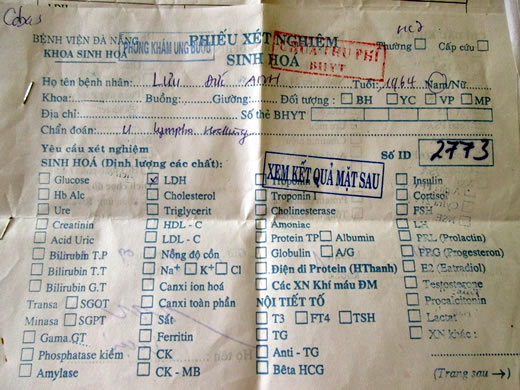 Cobas
BỆNH VIỆN ĐÀ NẴNG
KHOA SINH HOÁ
PHÒNG KHÁM UNG BƯỚU
PHIẾU XÉT NGHIỆM
SINH HOÁ
CHƯA THU PHÍ
BHYT
Thường Cấp cứu
Họ tên bệnh nhân: LƯU ANH Tuổi: 1964 Nam/Nữ
Khoa: Buồng: Giường: Đối tượng: BH YC VP MP
Địa chỉ: Số thẻ BHYT
Chẩn đoán: U lympho
Yêu cầu xét nghiệm
Số ID 2773
SINH HOÁ (Định lượng các chất):
XEM KẾT QUẢ MẶT SAU
Glucose LDH Insulin
Hb Alc Cholesterol Troponin I Cortisol
Ure Triglycerit Cholinesterase FSH
Creatinin HDL - C Amoniac LH
Acid Uric LDL - C Protein TP Albumin PRL (Prolactin)
Bilirubin T.P Nồng độ cồn Globulin A/G PRG (Progesteron)
Bilirubin T.T Na+ K+ Cl Điện di Protein (HThanh) E2 (Estradiol)
Bilirubin G.T Canxi ion hoá Các XN Khí máu ĐM Testosterone
Transa SGOT Canxi toàn phần NỘI TIẾT TỐ Procalcitonin
Minasa SGPT Sắt T3 FT4 TSH Lactat
Gama.GT Ferritin TG XN khác:
Phosphatase kiềm CK Anti - TG
Amylase CK - MB Bêta HCG (Trang sau →)